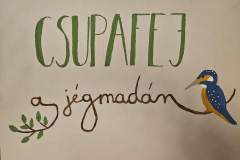 CSUPAFEJ
a jégmadán